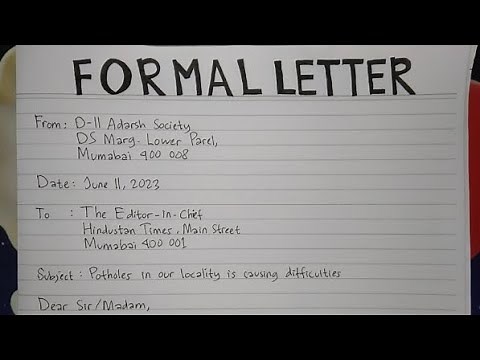 FORMAL LETTER
From: D-11 Adarsh Society
DS Marg- Lower Parel,
Mumabai 400 008
Date: June 11, 2023
To : The Editor-In-Chief
Hindustan Times, Main Street
Mumabai 400 001
Subject: Potholes in our locality is causing difficulties
Dear Sir/Madam,